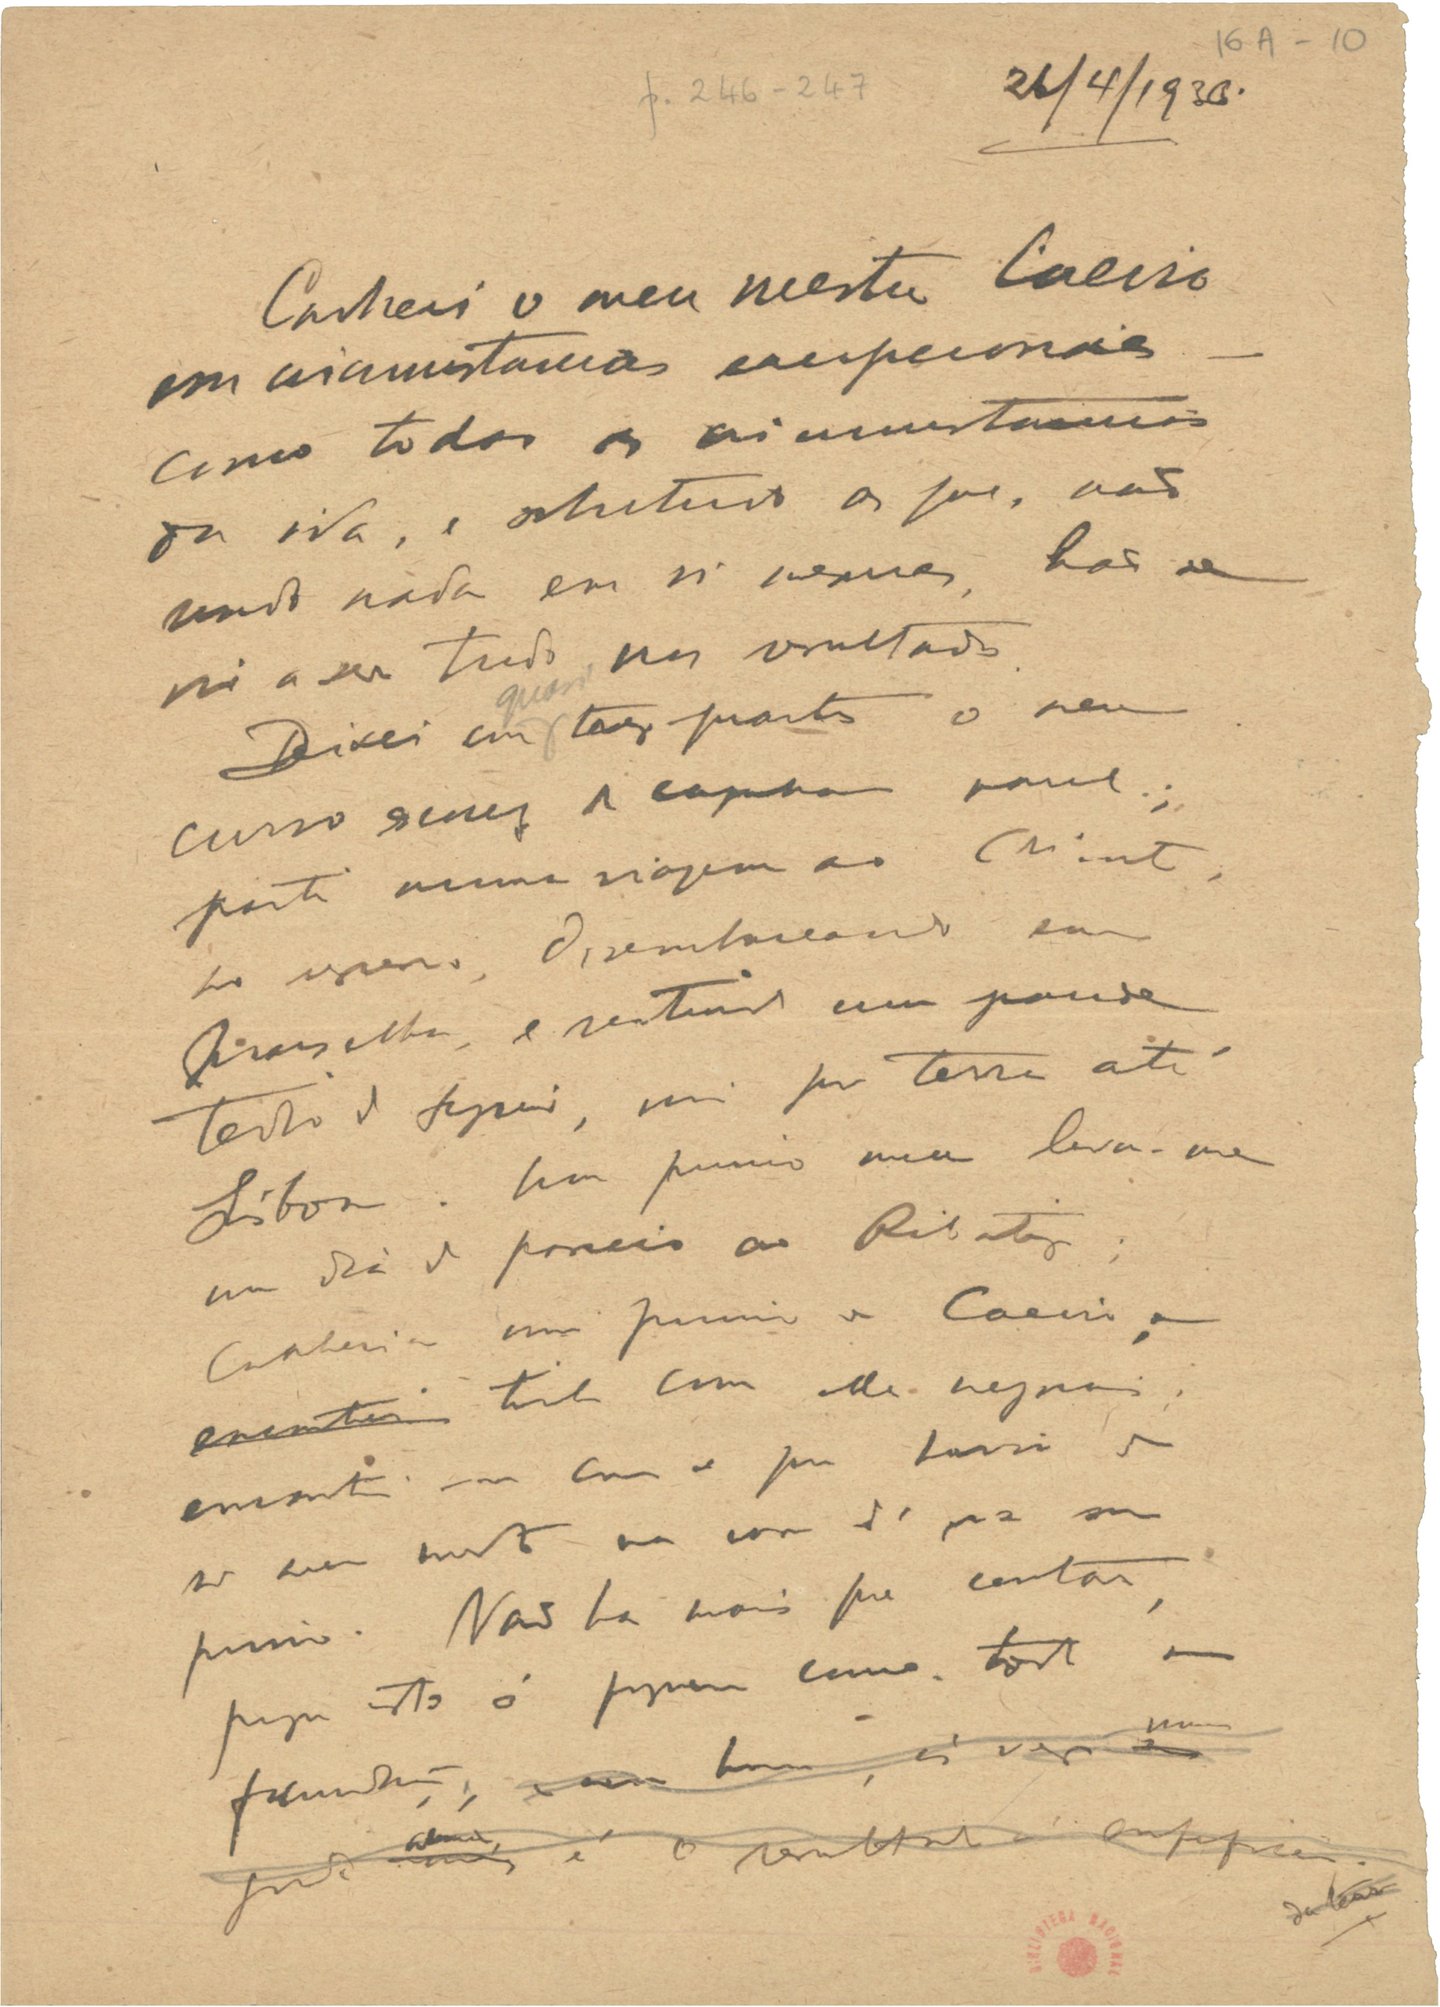 16A - 10
p. 246-247
/4/1930.
Conheci o meu mestre Caeiro
em circumstancias excepcionaes —
como todas as circumstancias
da vida, e sobretudo as que, não
sendo nada em si mesmas, hão de
vir a ser tudo nos resultados.
quasi
Deixei em tres quartos o meu
curso escocez de engenharia naval;
parti numa viagem ao Oriente;
no regresso, desembarcando em
Marselha, e sentindo um grande
tedio de seguir, vim por terra até
Lisboa. Um primo meu levou-me
um dia de passeio ao Ribatejo;
conhecia um primo de Caeiro, e
encontrei tinha com elle negocios;
encontrei-me com o que havia de
ser meu mestre na casa d'esse seu
primo. Não ha mais que contar,
porque isto é pequeno como toda a
fecundação;
é o resultado
BIBLIOTECA NACIONAL